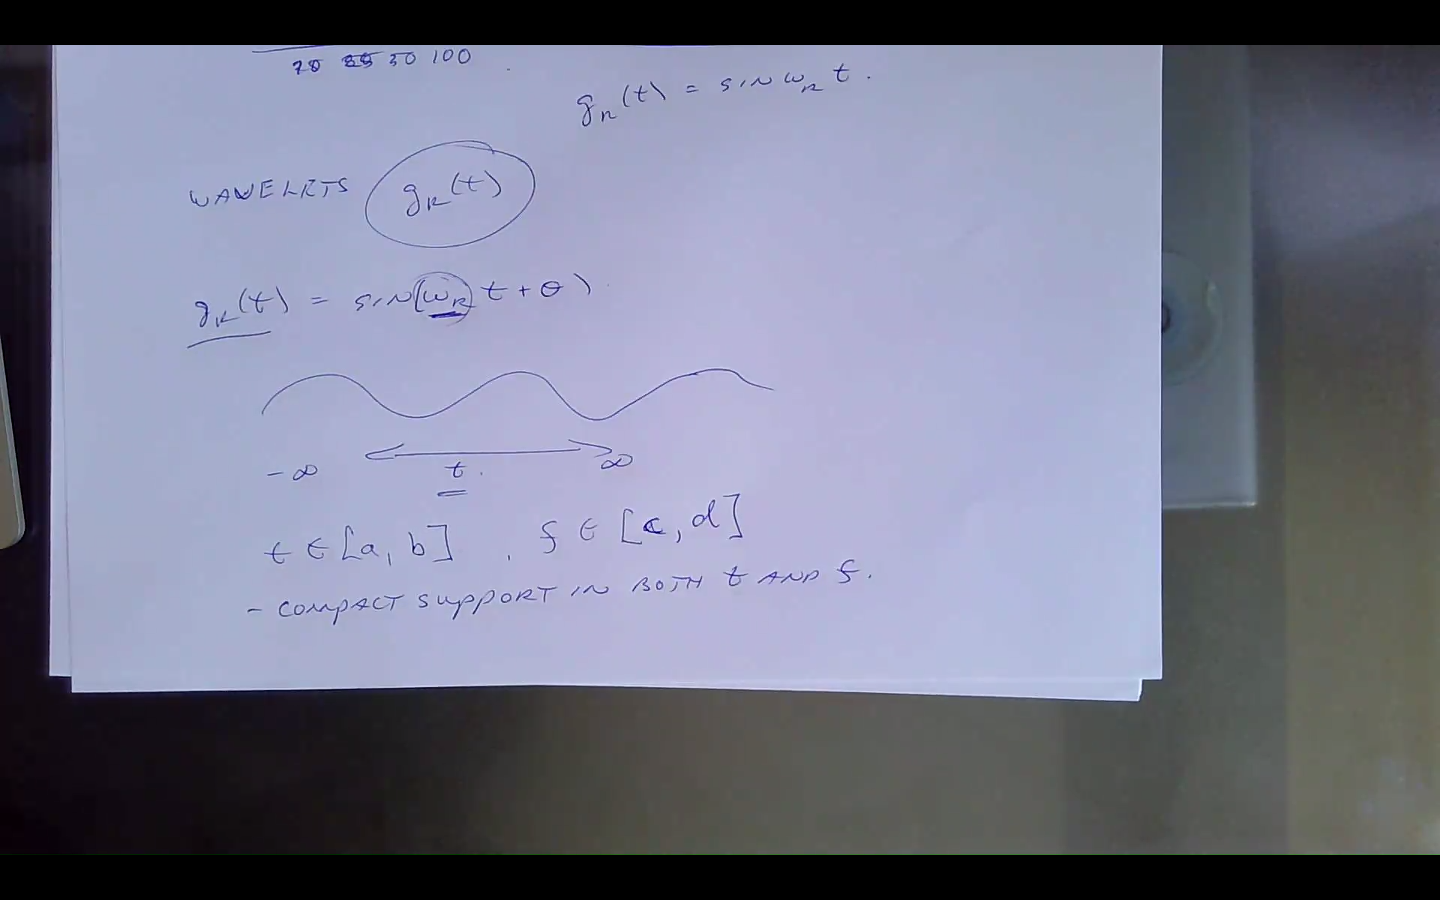 30 100
gₖ(t) = sin ωₖ t.
WAVELETS gₖ(t)
gₖ(t) = sin(ωₖ t + θ)
-∞ t. ∞
t ∈ [a, b], f ∈ [c, d]
- COMPACT SUPPORT IN BOTH t AND f.